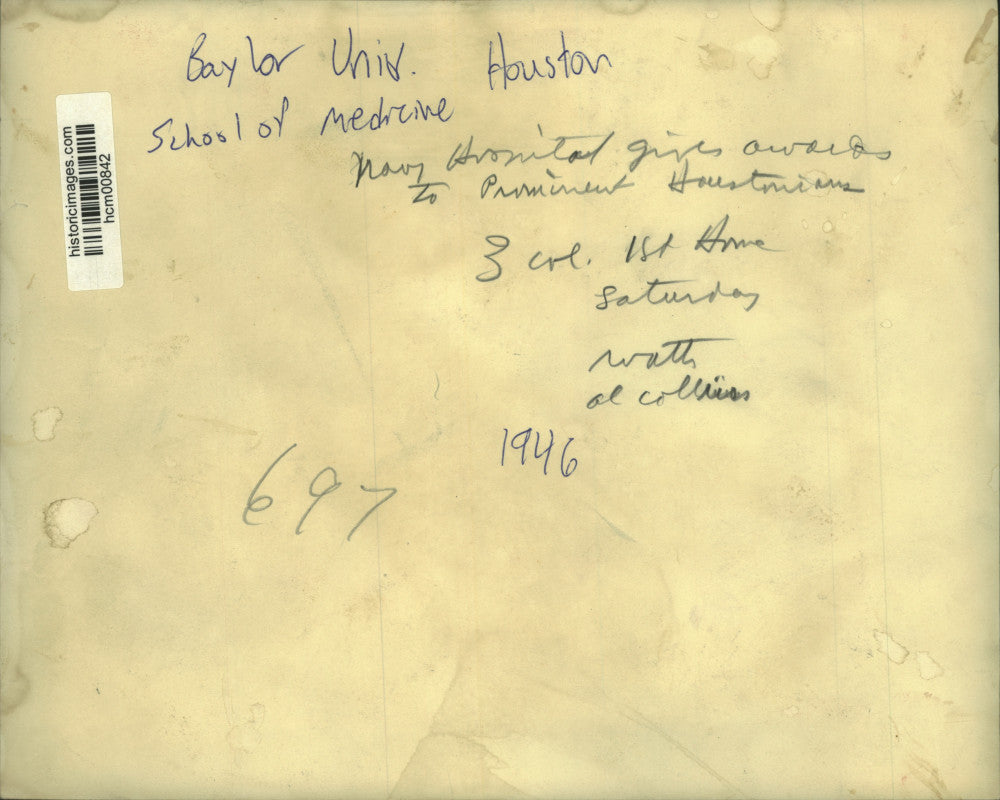 Baylor Univ. Houston
School of medicine
Navy Hospital gives awards
to Prominent Houstonians
3 col. 1st Home
Saturday
watts
al collins
1946
697
historicimages.com
hcm00842